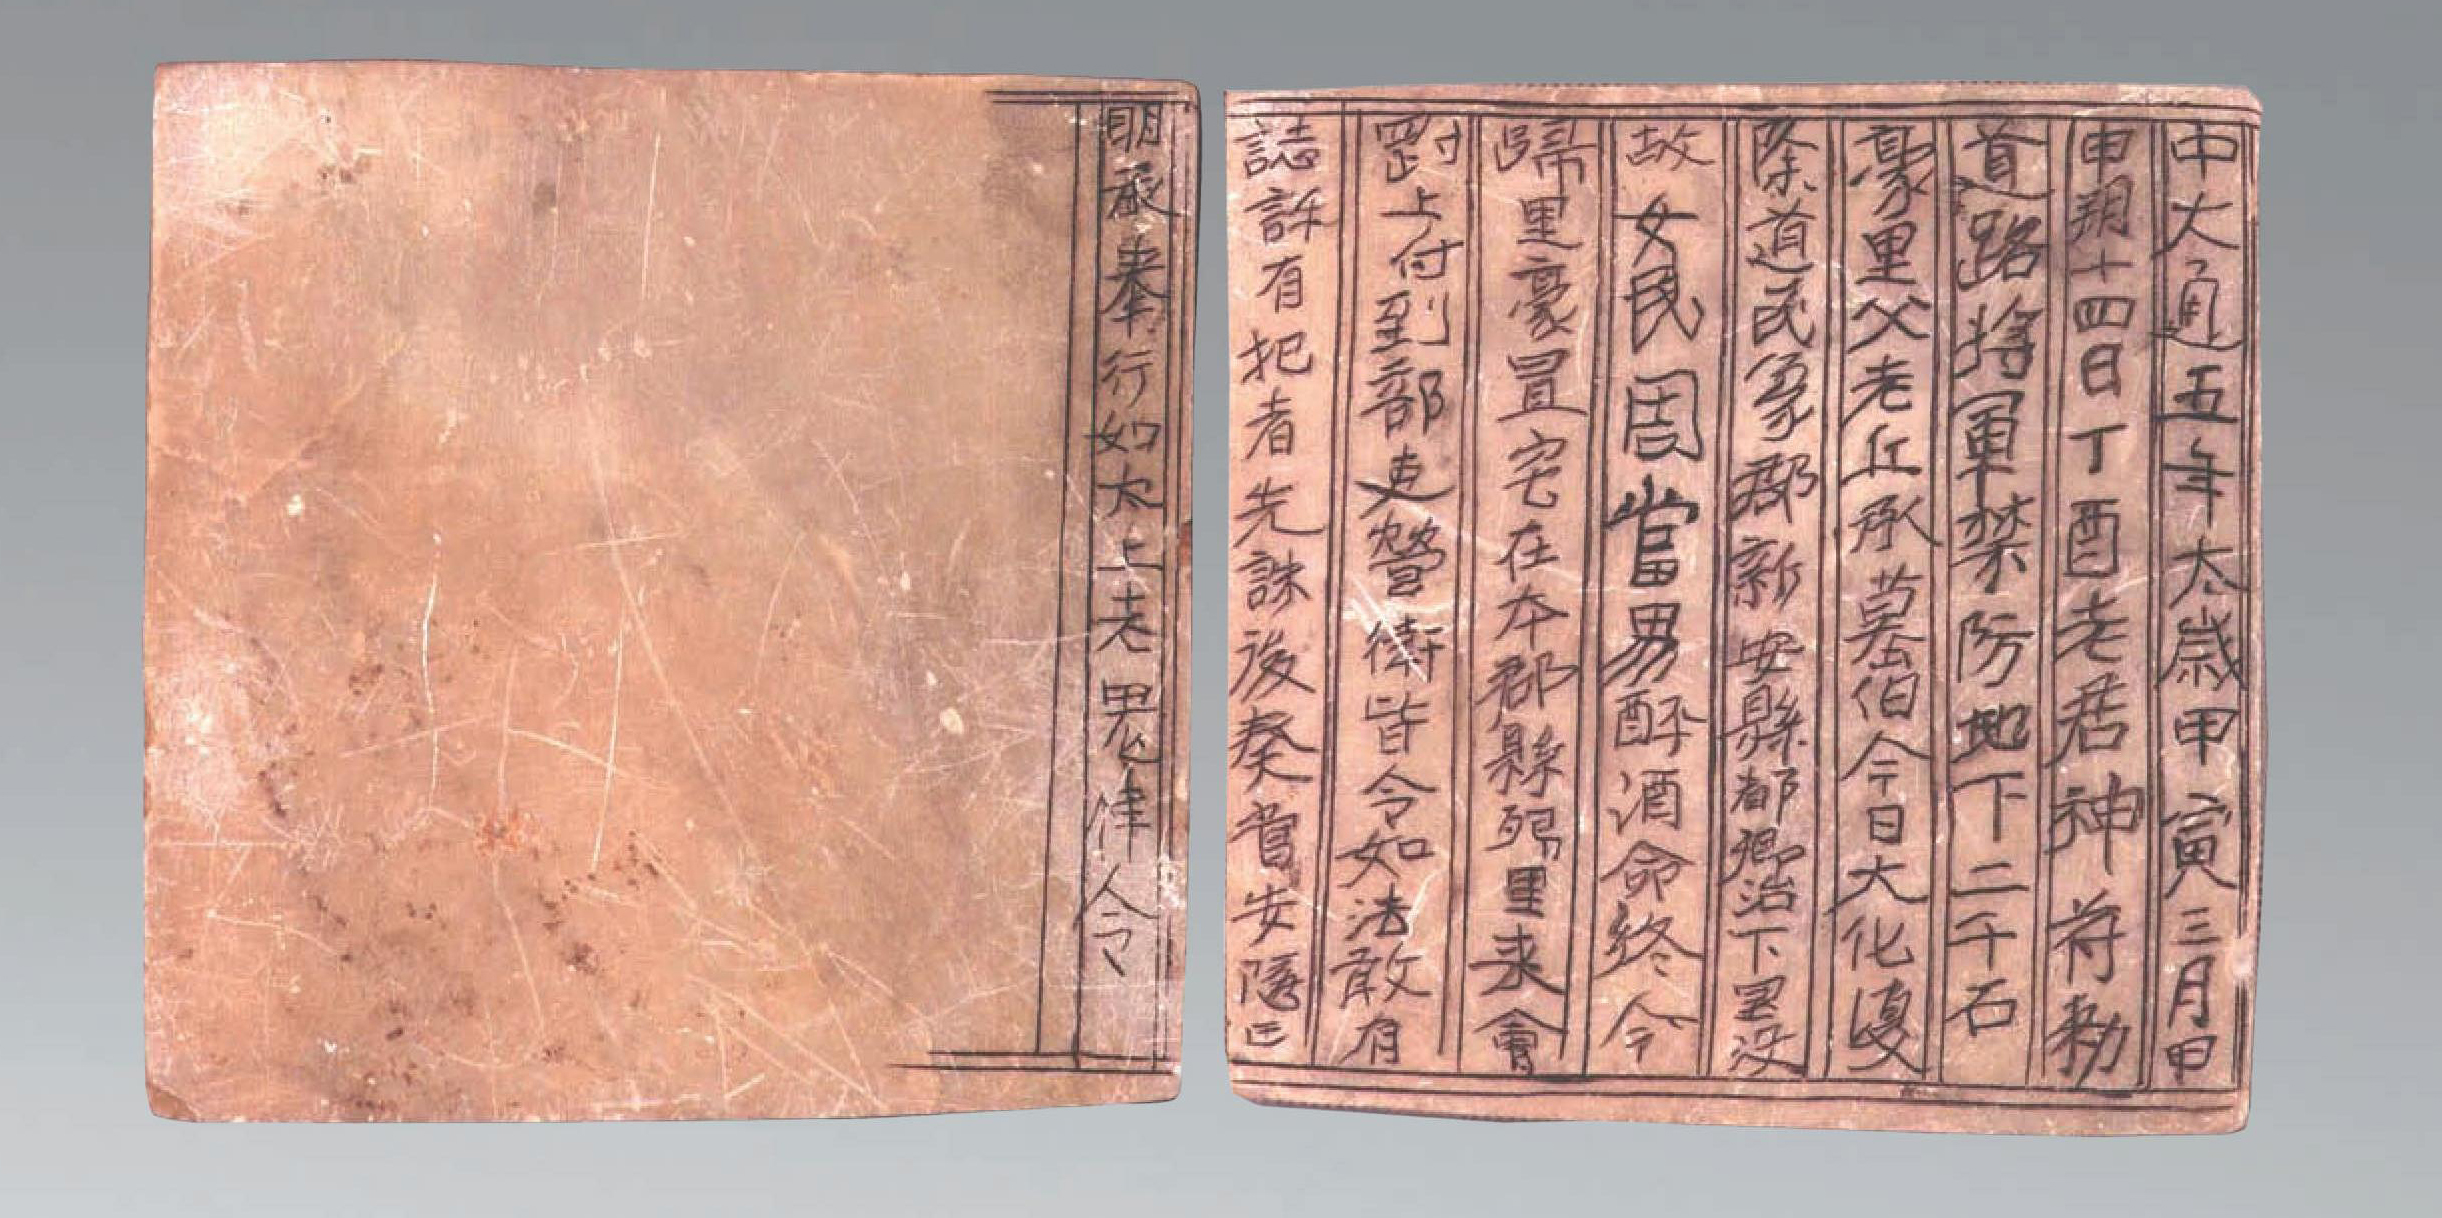 中大通五年太歲甲寅三月甲
申朔十四日丁酉老君神符勑
道路將軍禁防地下二千石
豪里父老丘承墓伯今日大化
除道民象郡新安縣都鄉治下里没
故女民周當男酔酒命終今
歸里豪置宅在本郡縣歸里来會
上付到部吏營衛皆令如法敢有
誌訴有犯者先誅後奏當安隱亡
明承奉行如太上老鬼律令